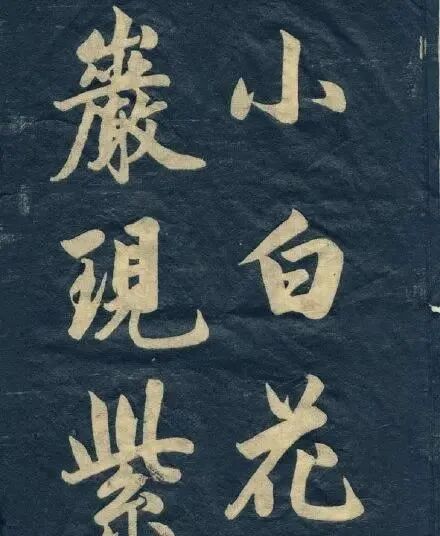 小白花
巖現紫